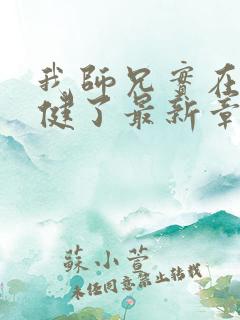 我師兄實在
健了最新章
蘇小萱
未經同意禁止轉載